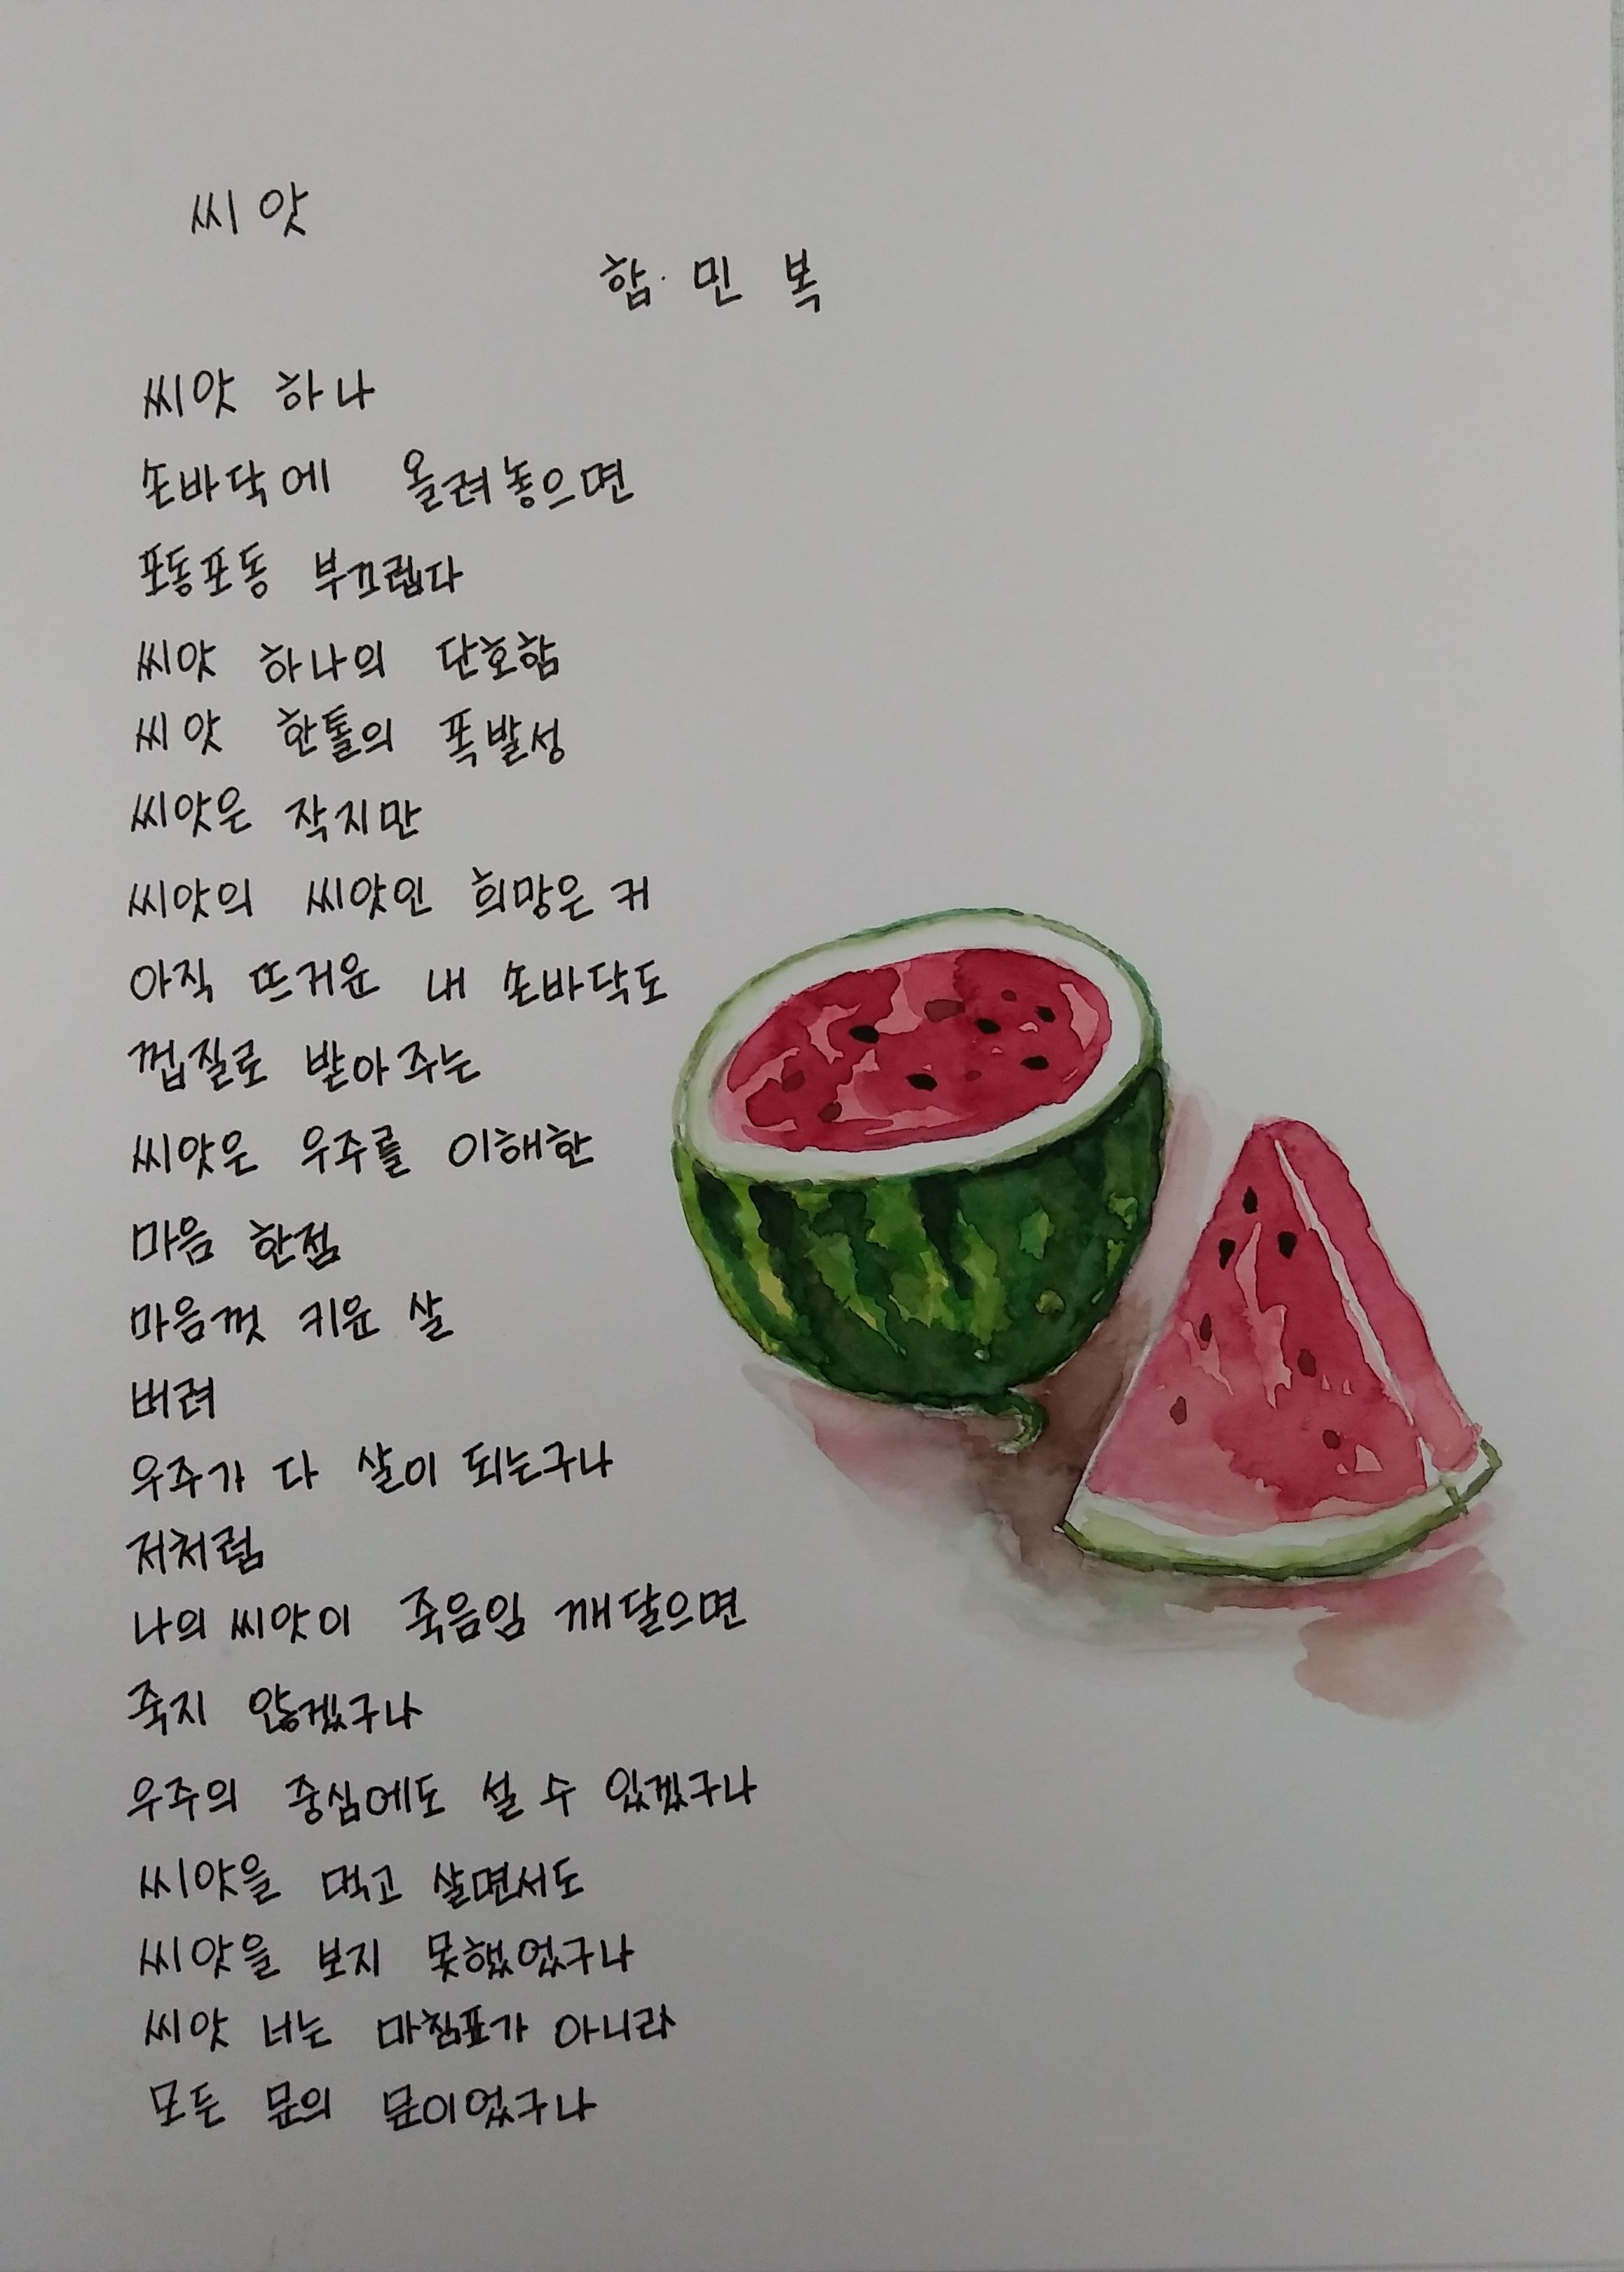 씨앗
함민복
씨앗 하나
손바닥에 올려놓으면
포동포동 부끄럽다
씨앗 하나의 단호함
씨앗 한톨의 폭발성
씨앗은 작지만
씨앗의 씨앗인 희망은 커
아직 뜨거운 내 손바닥도
껍질로 받아주는
씨앗은 우주를 이해한
마음 한점
마음껏 키운 살
버려
우주가 다 살이 되는구나
저처럼
나의 씨앗이 죽음임 깨달으면
죽지 않겠구나
우주의 중심에도 설 수 있겠구나
씨앗을 먹고 살면서도
씨앗을 보지 못했었구나
씨앗 너는 마침표가 아니라
모든 문의 문이었구나